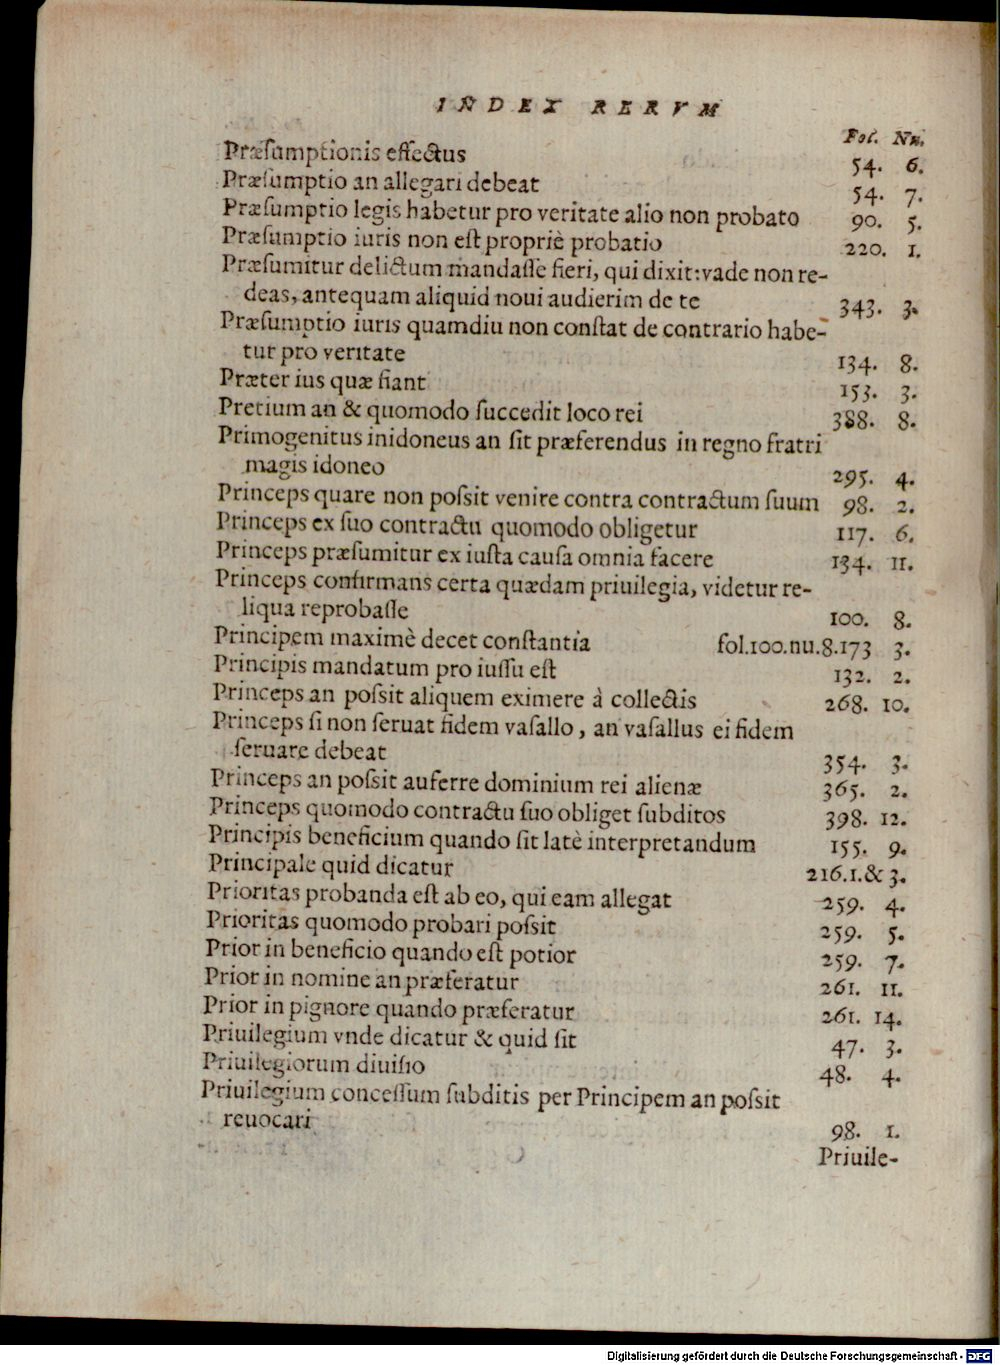 INDEX RERVM
Fol. Nu.
Præſumptionis effectus 54. 6.
Præſumptio an allegari debeat 54. 7.
Præſumptio legis habetur pro veritate alio non probato 90. 5.
Præſumptio iuris non eſt propriè probatio 220. 1.
Præſumitur delictum mandaſſe fieri, qui dixit: vade non re-
deas, antequam aliquid noui audierim de te 343. 3.
Præſumptio iuris quamdiu non conſtat de contrario habe-
tur pro veritate 134. 8.
Præter ius quæ fiant 153. 3.
Pretium an & quomodo ſuccedit loco rei 388. 8.
Primogenitus inidoneus an ſit præferendus in regno fratri
magis idoneo 295. 4.
Princeps quare non poſsit venire contra contractum ſuum 98. 2.
Princeps ex ſuo contractu quomodo obligetur 117. 6.
Princeps præſumitur ex iuſta cauſa omnia facere 134. 11.
Princeps confirmans certa quædam priuilegia, videtur re-
liqua reprobaſſe 100. 8.
Principem maximè decet conſtantia fol.100.nu.8.173 3.
Principis mandatum pro iuſſu eſt 132. 2.
Princeps an poſsit aliquem eximere à collectis 268. 10.
Princeps ſi non ſeruat fidem vaſallo, an vaſallus ei fidem
ſeruare debeat 354. 3.
Princeps an poſsit auferre dominium rei alienæ 365. 2.
Princeps quomodo contractu ſuo obliget ſubditos 398. 12.
Principis beneficium quando ſit latè interpretandum 155. 9.
Principale quid dicatur 216.1.& 3.
Prioritas probanda eſt ab eo, qui eam allegat 259. 4.
Prioritas quomodo probari poſsit 259. 5.
Prior in beneficio quando eſt potior 259. 7.
Prior in nomine an præferatur 261. 11.
Prior in pignore quando præferatur 261. 14.
Priuilegium vnde dicatur & quid ſit 47. 3.
Priuilegiorum diuiſio 48. 4.
Priuilegium conceſſum ſubditis per Principem an poſsit
reuocari 98. 1.
Priuile-
Digitalisierung gefördert durch die Deutsche Forschungsgemeinschaft - DFG